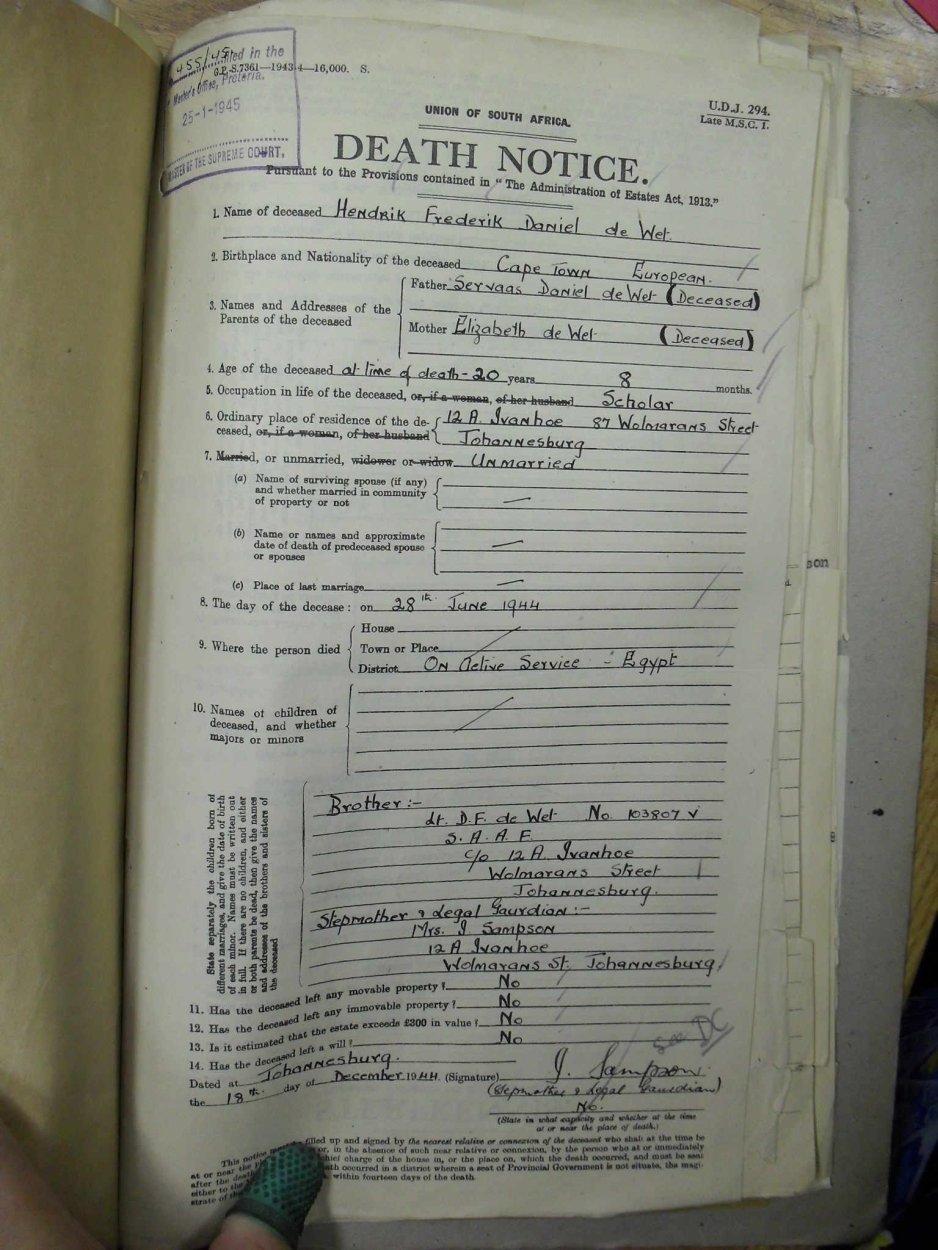 455/45
Filed in the
G.P.-S.7361—1943-4—16,000. S.
Master's Office, Pretoria.
25-1-1945
MASTER OF THE SUPREME COURT.
U.D.J. 294.
Late M.S.C. I.
UNION OF SOUTH AFRICA.
DEATH NOTICE.
Pursuant to the Provisions contained in "The Administration of Estates Act, 1913."
1. Name of deceased Hendrik Frederik Daniel de Wet.
2. Birthplace and Nationality of the deceased Cape Town European.
3. Names and Addresses of the Parents of the deceased
Father Servaas Daniel de Wet (Deceased)
Mother Elizabeth de Wet (Deceased)
4. Age of the deceased at time of death - 20 years 8 months.
5. Occupation in life of the deceased, or, if a woman, of her husband Scholar
6. Ordinary place of residence of the de- 12 A. Ivanhoe 87 Wolmarans Street
ceased, or, if a woman, of her husband Johannesburg
7. Married, or unmarried, widower or widow Unmarried
(a) Name of surviving spouse (if any)
and whether married in community
of property or not —
(b) Name or names and approximate
date of death of predeceased spouse —
or spouses
(c) Place of last marriage —
8. The day of the decease: on 28th June 1944
9. Where the person died
House
Town or Place
District On Active Service - Egypt
10. Names of children of
deceased, and whether
majors or minors
State separately the children born of
different marriages, and give the date of birth
of each minor. Names must be written out
in full. If there are no children, and either
or both parents be dead, then give the names
and addresses of the brothers and sisters of
the deceased
Brother :-
Lt. D.F. de Wet No. 103807 V
S. A. A. F.
c/o 12 A Ivanhoe
Wolmarans Street
Johannesburg.
Stepmother & Legal Gaurdian :-
Mrs. J Sampson
12 A Ivanhoe
Wolmarans St. Johannesburg.
11. Has the deceased left any movable property? No
12. Has the deceased left any immovable property? No
13. Is it estimated that the estate exceeds £300 in value? No
14. Has the deceased left a will? No
see DC
Dated at Johannesburg.
the 18th day of December 1944. (Signature) J. Sampson.
(Stepmother & Legal Gaurdian)
No.
(State in what capacity and whether at the time
or near the place of death.)
This notice filled up and signed by the nearest relative or connexion of the deceased who shall at the time be
at or near the or, in the absence of such near relative or connexion, by the person who at or immediately
after the death chief charge of the house in, or the place on, which the death occurred, and must be sent
either to the death occurred in a district wherein a seat of Provincial Government is not situate, the magi-
strate of within fourteen days of the death
son